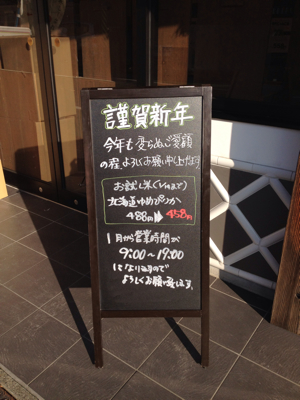 謹賀新年
今年も変らぬご愛顧
の程、よろしくお願い申し上げます。
お試し米(1/14まで)
北海道ゆめぴりか
488円 458円
1月から営業時間が
9:00〜19:00
になりますので
よろしくお願い致します。